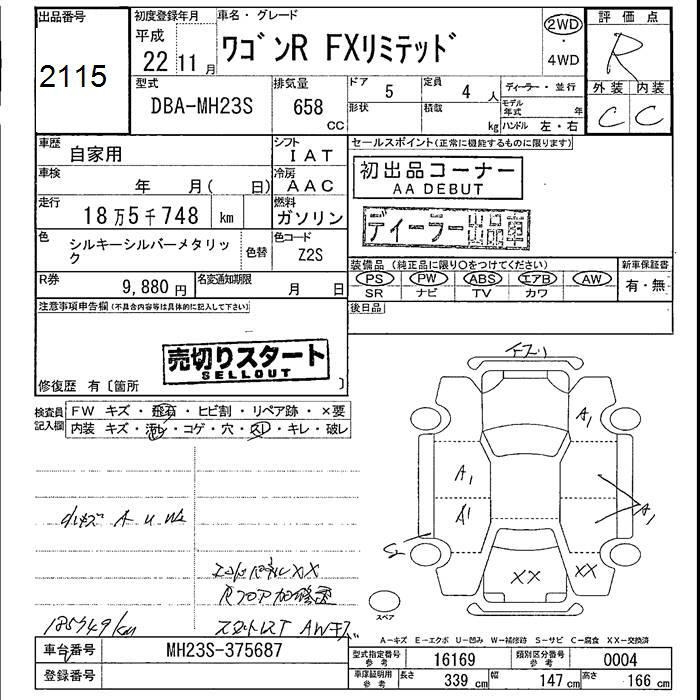 出品番号
2115
初度登録年月
平成
22 11月
車名・グレード
ワゴンR FXリミテッド
2WD
・
4WD
評価点
R
型式
DBA-MH23S
排気量
658
CC
ドア
5
定員
4 人
形状
積載
kg
ディーラー・並行
モデル年式 年
ハンドル 左・右
外装 内装
C C
車歴
自家用
シフト
IAT
車検
年 月( 日)
冷房
AAC
走行
18万5千748 km
燃料
ガソリン
色
シルキーシルバーメタリック
色替
色コード
Z2S
R券
9,880円
名変通知期限
月 日
セールスポイント(正常に機能するものに限ります)
初出品コーナー
AA DEBUT
ディーラー出品車
装備品(純正品に限り○をつけてください)
PS PW ABS エアB AW
SR ナビ TV カワ
新車保証書
有・無
後日品
注意事項申告欄(不具合内容等は具体的に記入して下さい)
売切りスタート
SELLOUT
修復歴 有〔箇所 〕
検査員記入欄
FW キズ・飛石・ヒビ割・リペア跡・×要
内装 キズ・汚レ・コゲ・穴・スレ・キレ・破レ
A U W
XX
185749km
AWキズ
A1
A1
A1
A1
XX
XX
スペア
A-キズ E-エクボ U-凹み W-補修跡 S-サビ C-腐食 XX-交換済
車台番号
MH23S-375687
登録番号
型式指定番号
参考
16169
類別区分番号
参考
0004
車庫証明用
参考
長さ 339 cm
幅 147 cm
高さ 166 cm